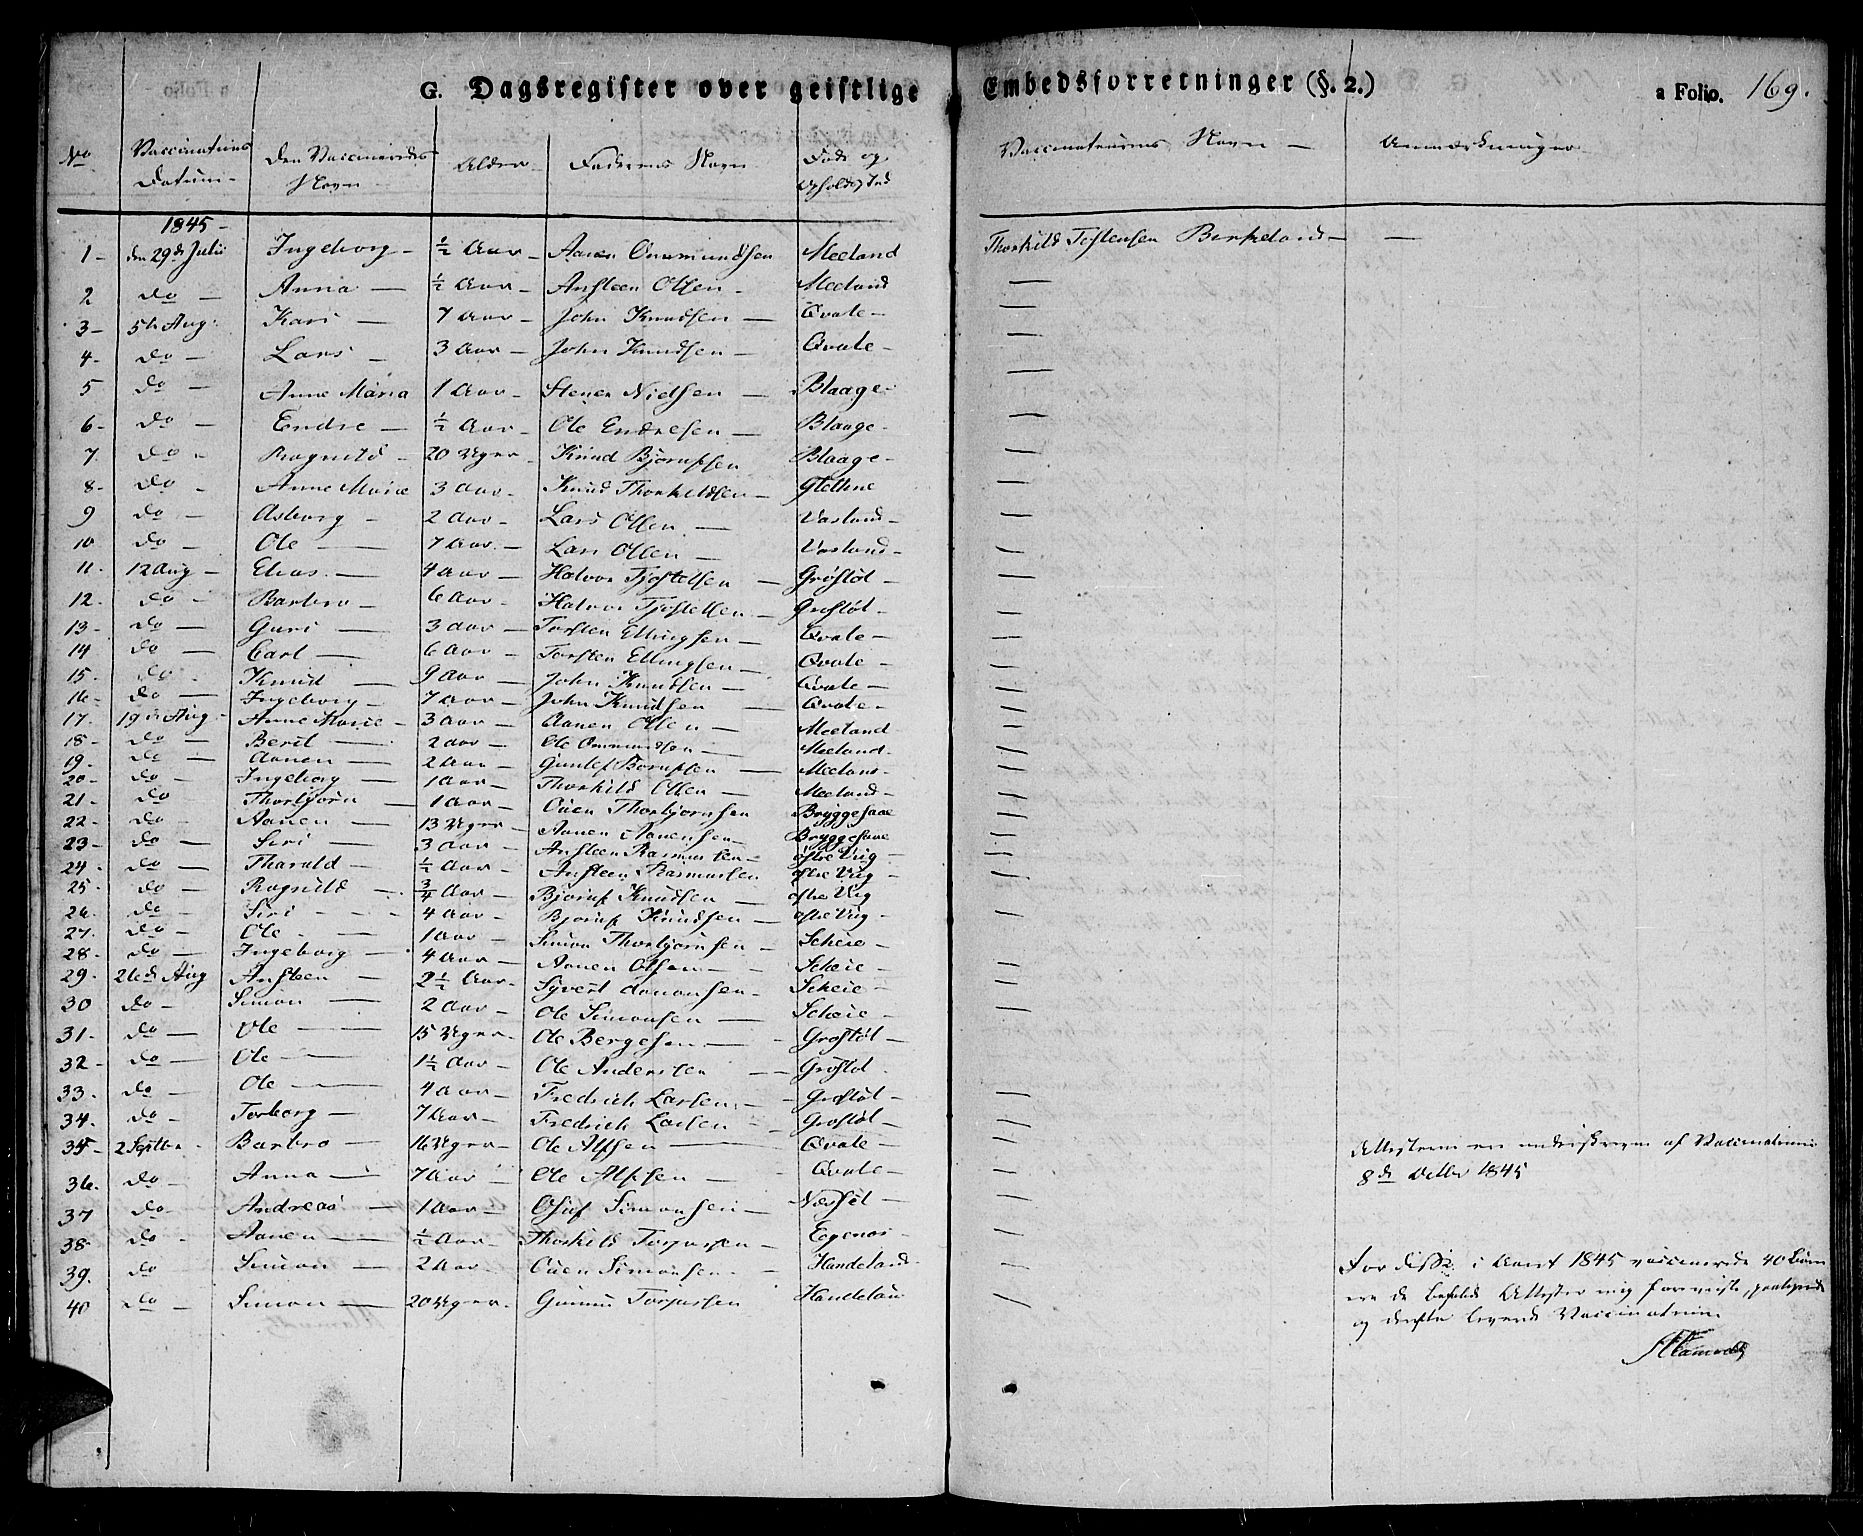 G. Dagsregister over geistlige Embedsforretninger (§. 2.) a Folio. 169.
No Vaccinations Datum - Den Vaccineredes Navn Alder - Faderens Navn Føde og Opholdssted Vaccinateurens Navn - Anmærkninger
1845 -
1 - den 29de Julii Ingeborg - ½ Aar - Aanen Ommundsen Meeland Thorkild Tostensen Birkeland -
2 do - Anna - ½ Aar - Ansteen Olsen - Meeland -
3 - 5te Aug: Kari - 7 Aar - John Knudsen - Qvale - -
4 - do - Lars - 3 Aar - John Knudsen - Qvale - -
5 do - Anne Maria 1 Aar - Stener Nielsen - Blaage - -
6 - do - Endre - ½ Aar - Ole Endresen - Blaage - -
7 do - Ragnild - 20 Uger - Knud Bjørnsen Blaage - -
8 - do - Anne Marie 3 Aar - Knud Thorkildsen - -
9 do - Asborg - 2 Aar - Lars Olsen - Vasland - -
10 do - Ole - 7 Aar - Lars Olsen - Vasland - -
11 - 12 Aug - Elias - 4 Aar - Halvor Tjøstelsen - Grøstøl - -
12 - do - Barbro - 6 Aar - Halvor Tjøstelsen - Grøstøl - -
13 - do - Guri - 3 Aar - Torsten Ellingsen - Qvale - -
14 do - Carl - 6 Aar - Torsten Ellingsen - Qvale - -
15 - do - Knud - 9 Aar - John Knudsen - Qvale - -
16 - do - Ingeborg - 7 Aar - John Knudsen - Qvale - -
17 - 19de Aug - Anne Marie - 3 Aar - Aanen Olsen - Meeland -
18 - do - Berit - 2 Aar - Ole Ommundsen - Meeland - -
19 - do - Aanen - 2 Aar - Meeland - -
20 - do - Ingeborg - 1 Aar - Thorkild Olsen - Meeland - -
21 - do Thorbjørn - 1 Aar - Ouen Thorbjørnsen Bryggesaae -
22 - do - Aanen - 13 Uger - Aanen Aanensen - Bryggesaae -
23 - do - Siri - 3 Aar - Ansteen Rasmussen - -
24 - do - Tharald - ½ Aar - Ansteen Rasmussen -
25 - do - Ragnild - ¾ Aar - Knudsen - -
26 - do - Siri - 4 Aar - Knudsen - -
27 - do - Ole - 1 Aar - Simon Thorbjørnsen - Scheie - -
28 - do - Ingeborg - 4 Aar - Aanen Olsen - Scheie - -
29 - 26de Aug Ansteen - 2½ Aar - Syvert Aanensen - Scheie - -
30 do - Simon - 2 Aar - Ole Simonsen - Scheie - -
31 - do - Ole - 15 Uger - Ole Bergesen - Grøstøl -
32 - do - Ole - 1½ Aar - Ole Andersen - Grøstøl -
33 - do - Ole - 4 Aar - Fredrich Larsen - Grøstøl - -
34 - do - Torborg - 7 Aar - Fredrich Larsen - Grøstøl - -
35 - 2 Septbr - Barbro - 16 Uger - Ole Alfsen - Qvale - - Attesterne ere underskrevne af Vaccinateuren
36 - do - Anna - 7 Aar - Ole Alfsen - Qvale - - 8de Octbr 1845
37 do - Andreas - 1 Aar - Simonsen - - -
38 - do - Aanen - ½ Aar - Thorkild Torjussen - Egenes - -
39 - do - Simon - 2 Aar - Ouen Simonsen - Handeland - - For disse i Aaret 1845 vaccinerede 40 Børn
40 do - Simon - 20 Uger - Gunnu Torjussen Handeland - ere de befalede Attester mig foreviste,
og Vaccinateuren